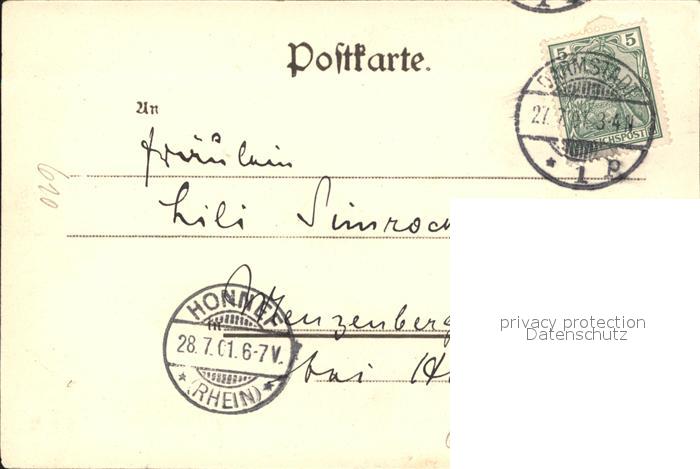 Postkarte.
An
Fräulein
Lili Simroc
in Menzenberg
bei H
620
5 5
REICHSPOST
DARMSTADT
27.7.01. 3-4 N
* 1 P
HONNEF
28.7.01. 6-7 V.
* (RHEIN) *
privacy protection
Datenschutz